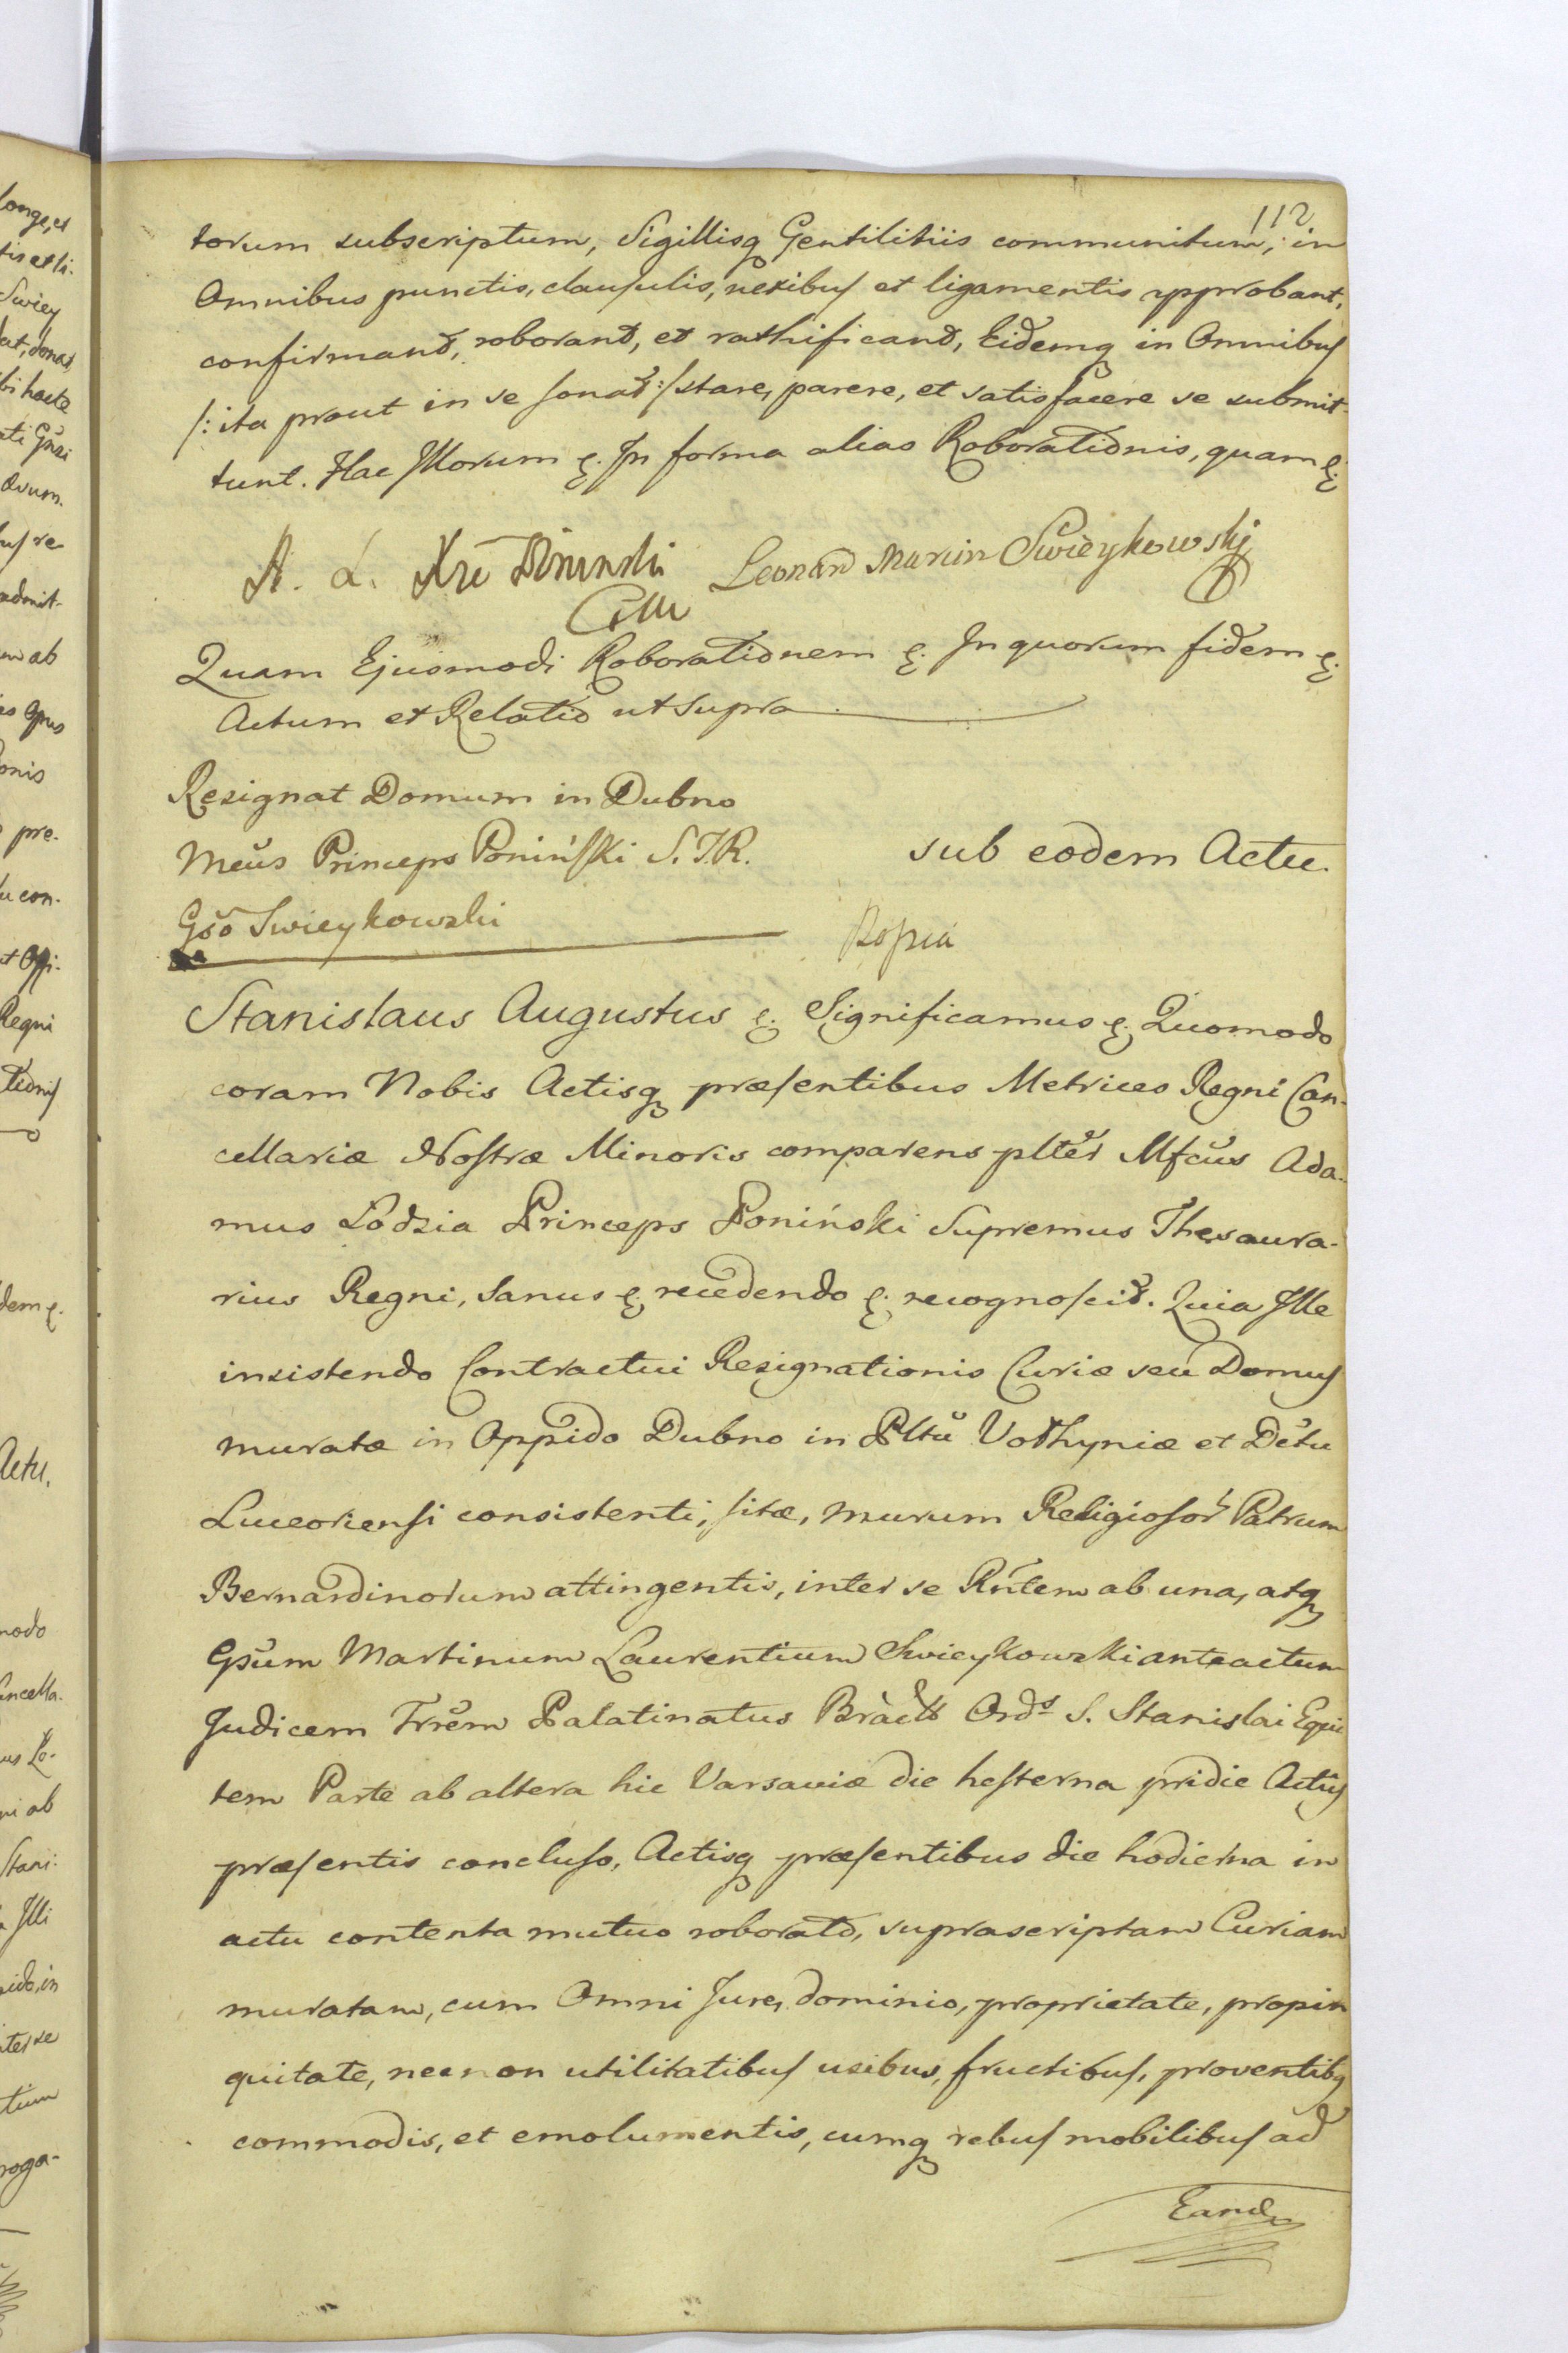 112
torum subscriptum, Sigillisq Gentilitiis communitum, in
Omnibus punctis, clausulis, nexibus et ligamentis approbant,
confirmant, roborant, et rathificant, Eidemq in Omnibus
/: ita prout in se sonat :/ stare, parere, et satisfacere se submit-
tunt. Hac Illorum &. In forma alias Roborationis, quam &.
A. Ł. Xże Poninski Leonard Marcin Swieykowski
Quam Ejusmodi Roborationem &. In quorum fidem &.
Actum et Relatio ut supra
Resignat Domum in Dubno
Mcus Princeps Poniński S.T.R. sub eodem Actu.
Gso Swieykowski
Kopia
Stanislaus Augustus &. Significamus &. Quomodo
coram Nobis Actisq præsentibus Metrices Regni Can-
cellariæ Nostræ Minoris comparens plter Mfcus Ada-
mus Łodzia Princeps Poniński Supremus Thesaura-
rius Regni, Sanus &. recedendo &. recognoscit. Quia Ille
insistendo Contractui Resignationis Curiæ seu Domus
muratæ in Oppido Dubno in Pltu Volhyniæ et Dctu
Luceoriensi consistenti, sitæ, murum Religiosor Patrum
Bernardinorum attingentis, inter se Rntem ab una, atq
Gsum Martinum Laurentium Swieykowski anteactum
Judicem Trrem Palatinatus Braclt Ords S. Stanislai Equi
tem Parte ab altera hic Varsaviæ die hesterna pridie Actus
præsentis concluso, Actisq præsentibus die hodierna in
actu contenta mutuo roborato, suprascriptam Curiam
muratam, cum Omni Jure, dominio, proprietate, propin
quitate, nec non utilitatibus usibus, fructibus, proventibq
commodis, et emolumentis, cumq rebus mobilibus ad
Eand